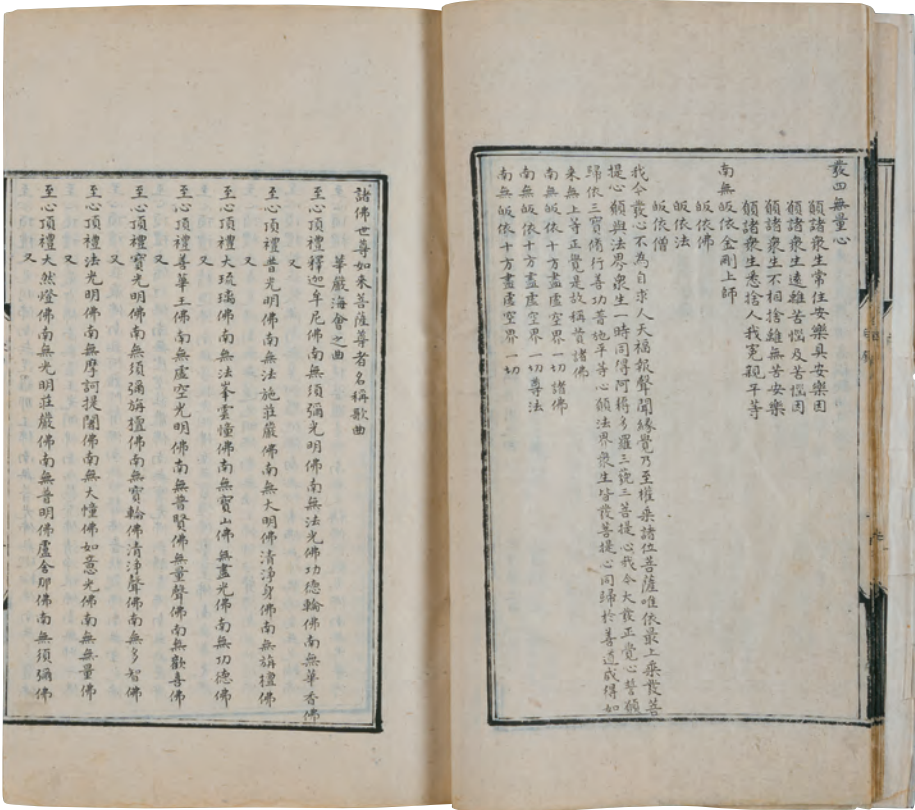 發四無量心
願諸衆生常住安樂具安樂因
願諸衆生遠離苦惱及苦惱因
願諸衆生不相捨離無苦安樂
願諸衆生悉捨人我冤親平等
南無皈依金剛上師
皈依佛
皈依法
皈依僧
我今發心不為自求人天福報聲聞緣覺乃至權乘諸位菩薩唯依最上乘發菩
提心願與法界衆生一時同得阿耨多羅三藐三菩提心我今大發正覺心誓願
歸依三寳脩行善功普施平等心願法界衆生皆發菩提心同歸於善道成得如
來無上等正覺是故稱賛諸佛
南無皈依十方盡虛空界一切諸佛
南無皈依十方盡虛空界一切尊法
南無皈依十方盡虛空界一切
諸佛世尊如來菩薩尊者名稱歌曲
華嚴海會之曲
至心頂禮釋迦牟尼佛南無須彌光明佛南無法光佛功德輪佛南無華香佛
又
至心頂禮普光明佛南無法施莊嚴佛南無大明佛清淨身佛南無旃檀佛
又
至心頂禮大琉璃佛南無法峯雲幢佛南無寳山佛無盡光佛南無功德佛
又
至心頂禮善華王佛南無虛空光明佛南無普賢佛無量聲佛南無歡喜佛
又
至心頂禮寳光明佛南無須彌旃檀佛南無寳輪佛清淨聲佛南無多智佛
又
至心頂禮法光明佛南無摩訶提闍佛南無大幢佛如意光佛南無無量佛
又
至心頂禮大然燈佛南無光明莊嚴佛南無普明佛盧舍那佛南無須彌佛
又